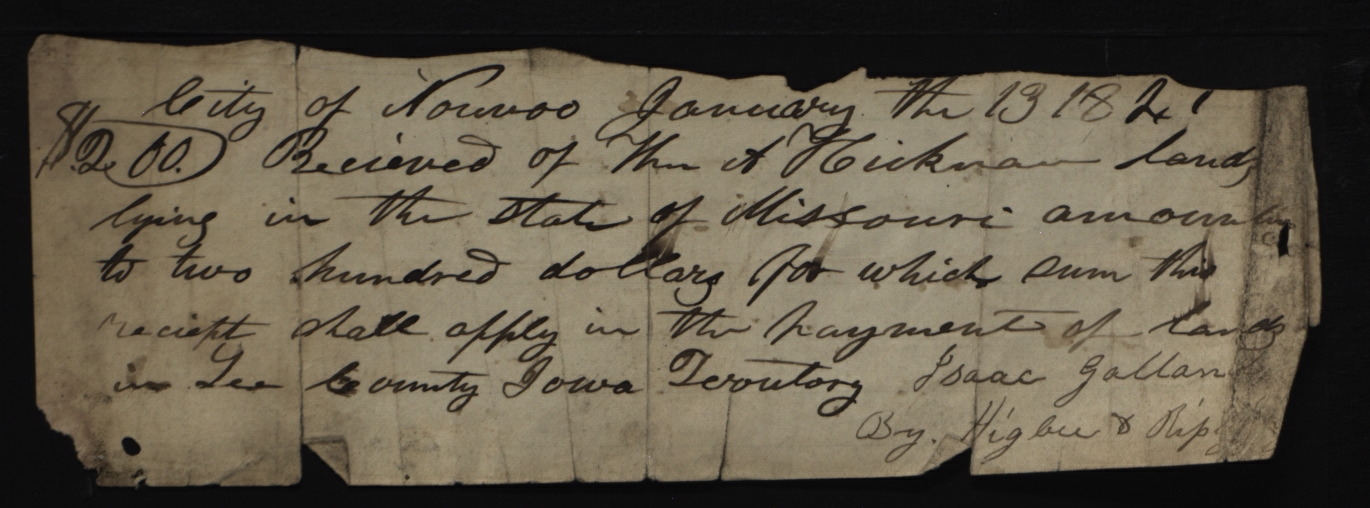 City of Nouvoo January the 13 1841
$200. Recieved of Thm A Hickman lands
lying in the state of Missouri amounting
to two hundred dollars for which sum this
reciept shall apply in the payment of lands
in Lee County Iowa Teroutory Isaac Gallan
By. Higbee & Rip